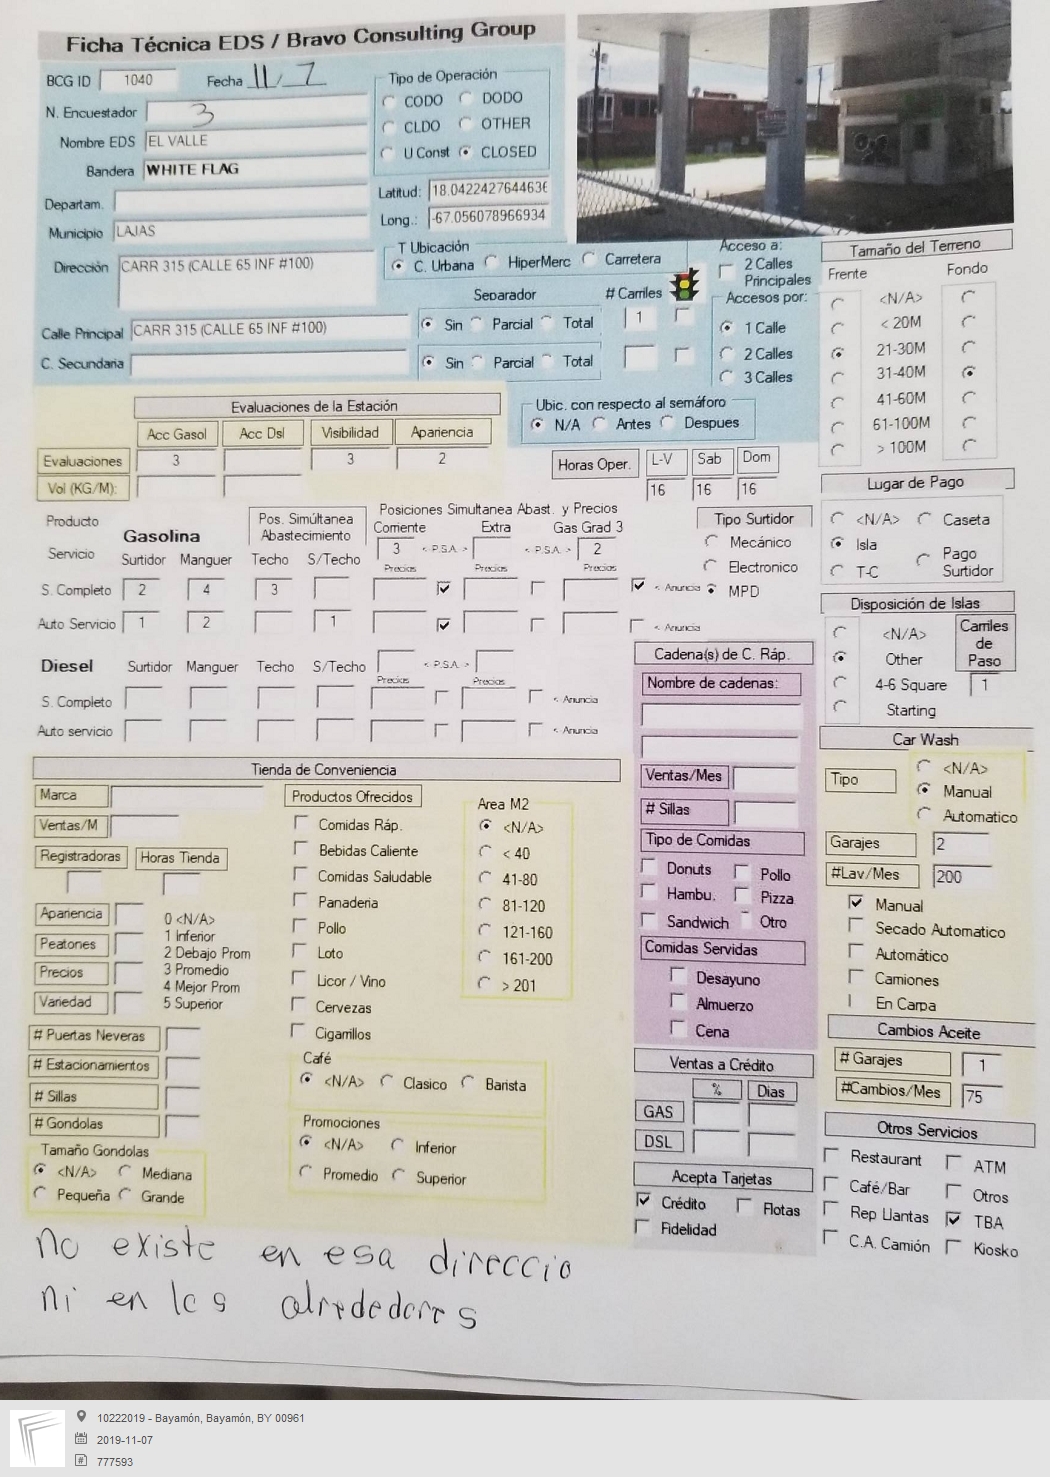 Ficha Técnica EDS / Bravo Consulting Group
BCG ID 1040 Fecha 11/7
N. Encuestador 3
Nombre EDS EL VALLE
Bandera WHITE FLAG
Departam.
Municipio LAJAS
Dirección CARR 315 (CALLE 65 INF #100)
Calle Principal CARR 315 (CALLE 65 INF #100)
C. Secundaria
Tipo de Operación
CODO DODO
CLDO OTHER
U Const CLOSED
Latitud: 18.0422427644636
Long.: -67.056078966934
T Ubicación
C. Urbana HiperMerc Carretera
Separador # Carriles
Sin Parcial Total 1
Sin Parcial Total
Acceso a:
2 Calles
Principales
Accesos por:
1 Calle
2 Calles
3 Calles
Ubic. con respecto al semáforo
N/A Antes Despues
Tamaño del Terreno
Frente Fondo
<N/A>
< 20M
21-30M
31-40M
41-60M
61-100M
> 100M
Evaluaciones de la Estación
Acc Gasol Acc Dsl Visibilidad Apariencia
Evaluaciones 3 3 2
Vol (KG/M):
Horas Oper. L-V Sab Dom
16 16 16
Lugar de Pago
<N/A> Caseta
Isla Pago
T-C Surtidor
Producto
Servicio
Gasolina
Pos. Simúltanea
Abastecimiento
Posiciones Simultanea Abast. y Precios
Corriente Extra Gas Grad 3
3 < P.S.A. > < P.S.A. > 2
Surtidor Manguer Techo S/Techo Precios Precios Precios
S. Completo 2 4 3 < Anuncia
Auto Servicio 1 2 1 < Anuncia
Tipo Surtidor
Mecánico
Electronico
MPD
Disposición de Islas
<N/A>
Other
4-6 Square
Starting
Carriles
de
Paso
1
Diesel Surtidor Manguer Techo S/Techo < P.S.A. >
Precios Precios
S. Completo < Anuncia
Auto servicio < Anuncia
Cadena(s) de C. Ráp.
Nombre de cadenas:
Ventas/Mes
# Sillas
Tipo de Comidas
Donuts Pollo
Hambu. Pizza
Sandwich Otro
Comidas Servidas
Desayuno
Almuerzo
Cena
Car Wash
Tipo <N/A>
Manual
Automatico
Garajes 2
#Lav/Mes 200
Manual
Secado Automatico
Automático
Camiones
En Carpa
Cambios Aceite
# Garajes 1
#Cambios/Mes 75
Tienda de Conveniencia
Marca
Ventas/M
Registradoras Horas Tienda
Apariencia
Peatones
Precios
Variedad
0 <N/A>
1 Inferior
2 Debajo Prom
3 Promedio
4 Mejor Prom
5 Superior
# Puertas Neveras
# Estacionamientos
# Sillas
# Gondolas
Tamaño Gondolas
<N/A> Mediana
Pequeña Grande
Productos Ofrecidos
Comidas Ráp.
Bebidas Caliente
Comidas Saludable
Panaderia
Pollo
Loto
Licor / Vino
Cervezas
Cigarrillos
Area M2
<N/A>
< 40
41-80
81-120
121-160
161-200
> 201
Café
<N/A> Clasico Barista
Promociones
<N/A> Inferior
Promedio Superior
Ventas a Crédito
% Dias
GAS
DSL
Acepta Tarjetas
Crédito Flotas
Fidelidad
Otros Servicios
Restaurant ATM
Café/Bar Otros
Rep Llantas TBA
C.A. Camión Kiosko
no existe en esa direccio
ni en los alrededores
10222019 - Bayamón, Bayamón, BY 00961
2019-11-07
777593